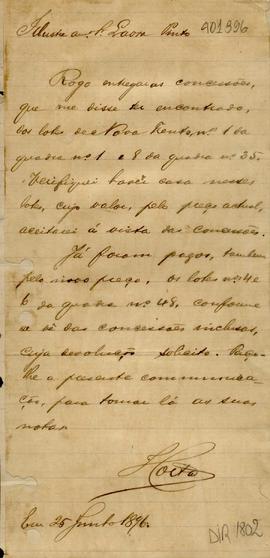 401396
Illustre am.º Laove Pinto
Rogo entregar as concessões,
que me disse ter encontrado,
dos lotes de Nova Trento, nº 1 da
quadra nº 1 e 8 da quadra nº 35.
Verifiquei haver casa nesses
lotes, cujo valor, pelo preço actual,
aceitarei á vista das concessões.
Já foram pagos, tambem
pelo novo preço, os lotes nº 4 e
6 da quadra nº 48, conforme
se vê das concessões inclusas,
cuja devolução solicito. Rogo-
lhe a presente communica-
ção, para tomar lá as suas
notas.
Em 25 Junho 1896.
DIR 1802